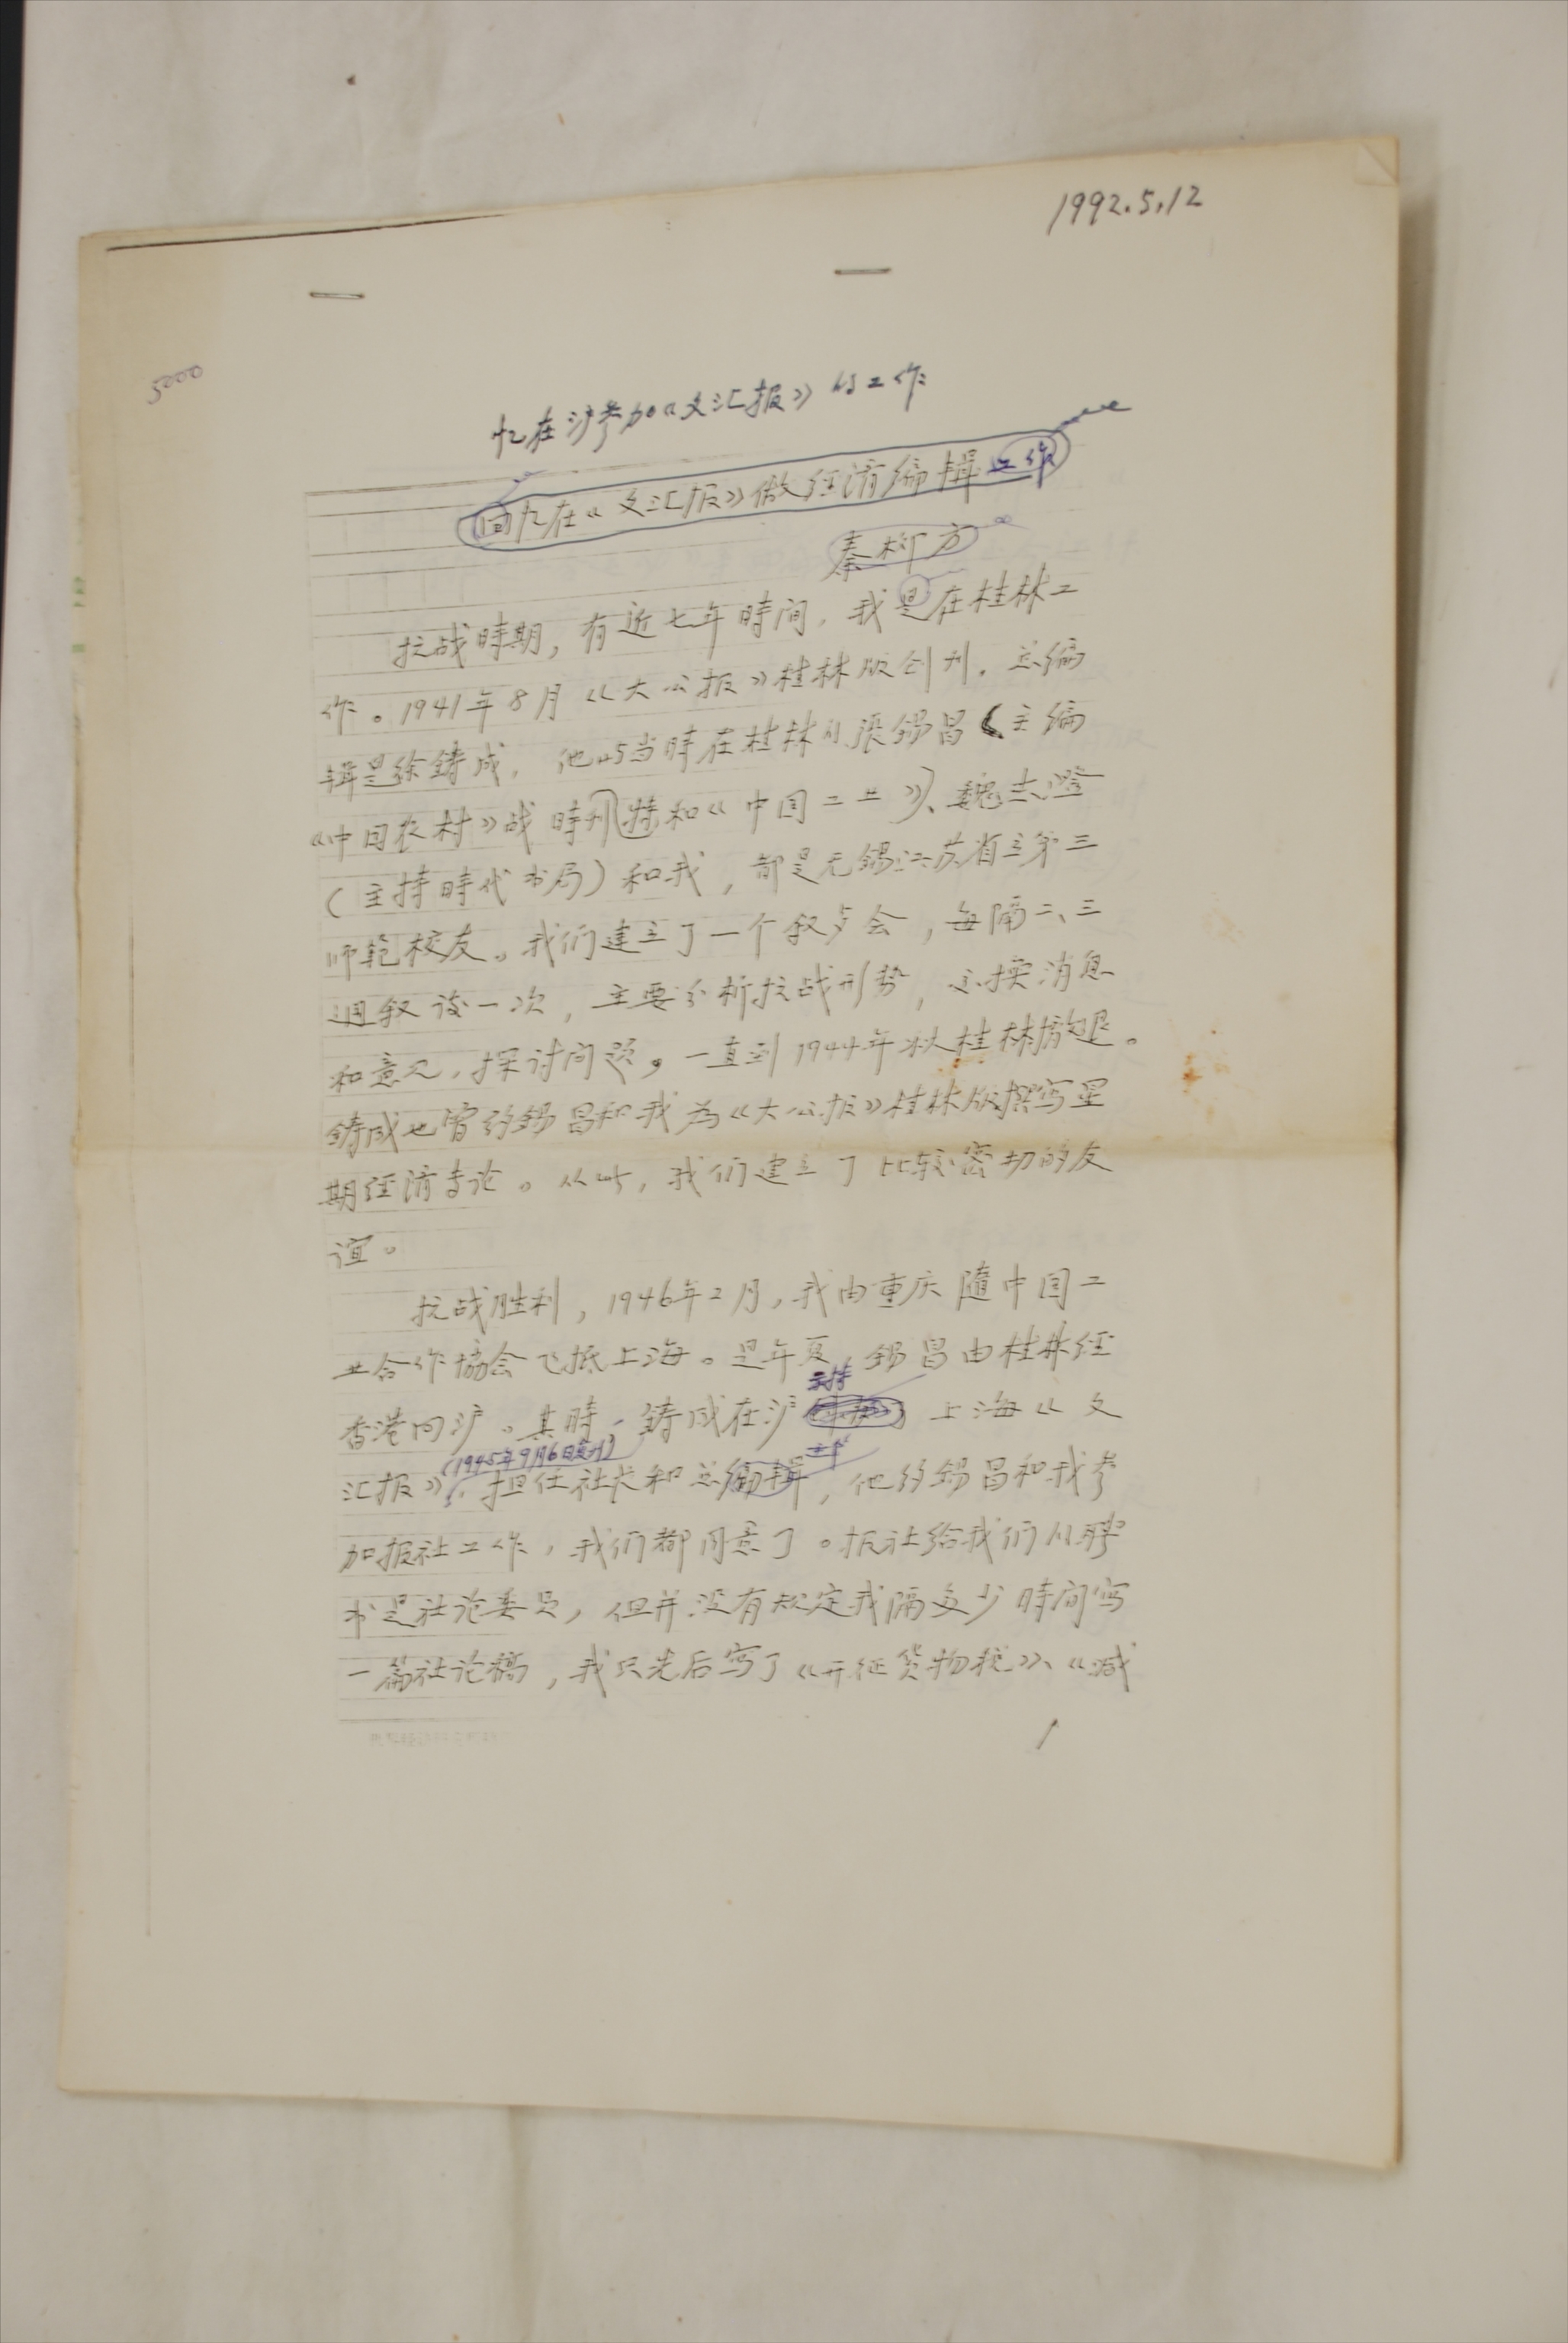 1992.5.12
5000
忆在沪参加《文汇报》的工作
回忆在《文汇报》做经济编辑工作
秦柳方
抗战時期，有近七年時间，我是在桂林工
作。1941年8月《大公报》桂林版创刊，总编
辑是徐鋳成，他与当時在桂林的张锡昌（主编
《中国农村》战時刊特和《中国工业》）、魏志澄
（主持時代书局）和我，都是无锡江苏省立第三
师範校友。我们建立了一个叙歺会，每隔二、三
週叙谈一次，主要分析抗战形势，交换消息
和意见，探讨问题。一直到1944年秋桂林撤退。
鋳成也曾约锡昌和我为《大公报》桂林版撰写星
期经济专论。从此，我们建立了比较密切的友
谊。
抗战胜利，1946年2月，我由重庆随中国工
业合作協会飞抵上海。是年夏，锡昌由桂林经
主持
香港回沪。其時，鋳成在沪上海《文
（1945年9月6日复刊）
汇报》，担任社长和总编辑，他约锡昌和我参
加报社工作，我们都同意了。报社给我们的聘
书是社论委员，但并没有规定我隔多少時间写
一篇社论稿，我只先后写了《开征货物税》、《减
1